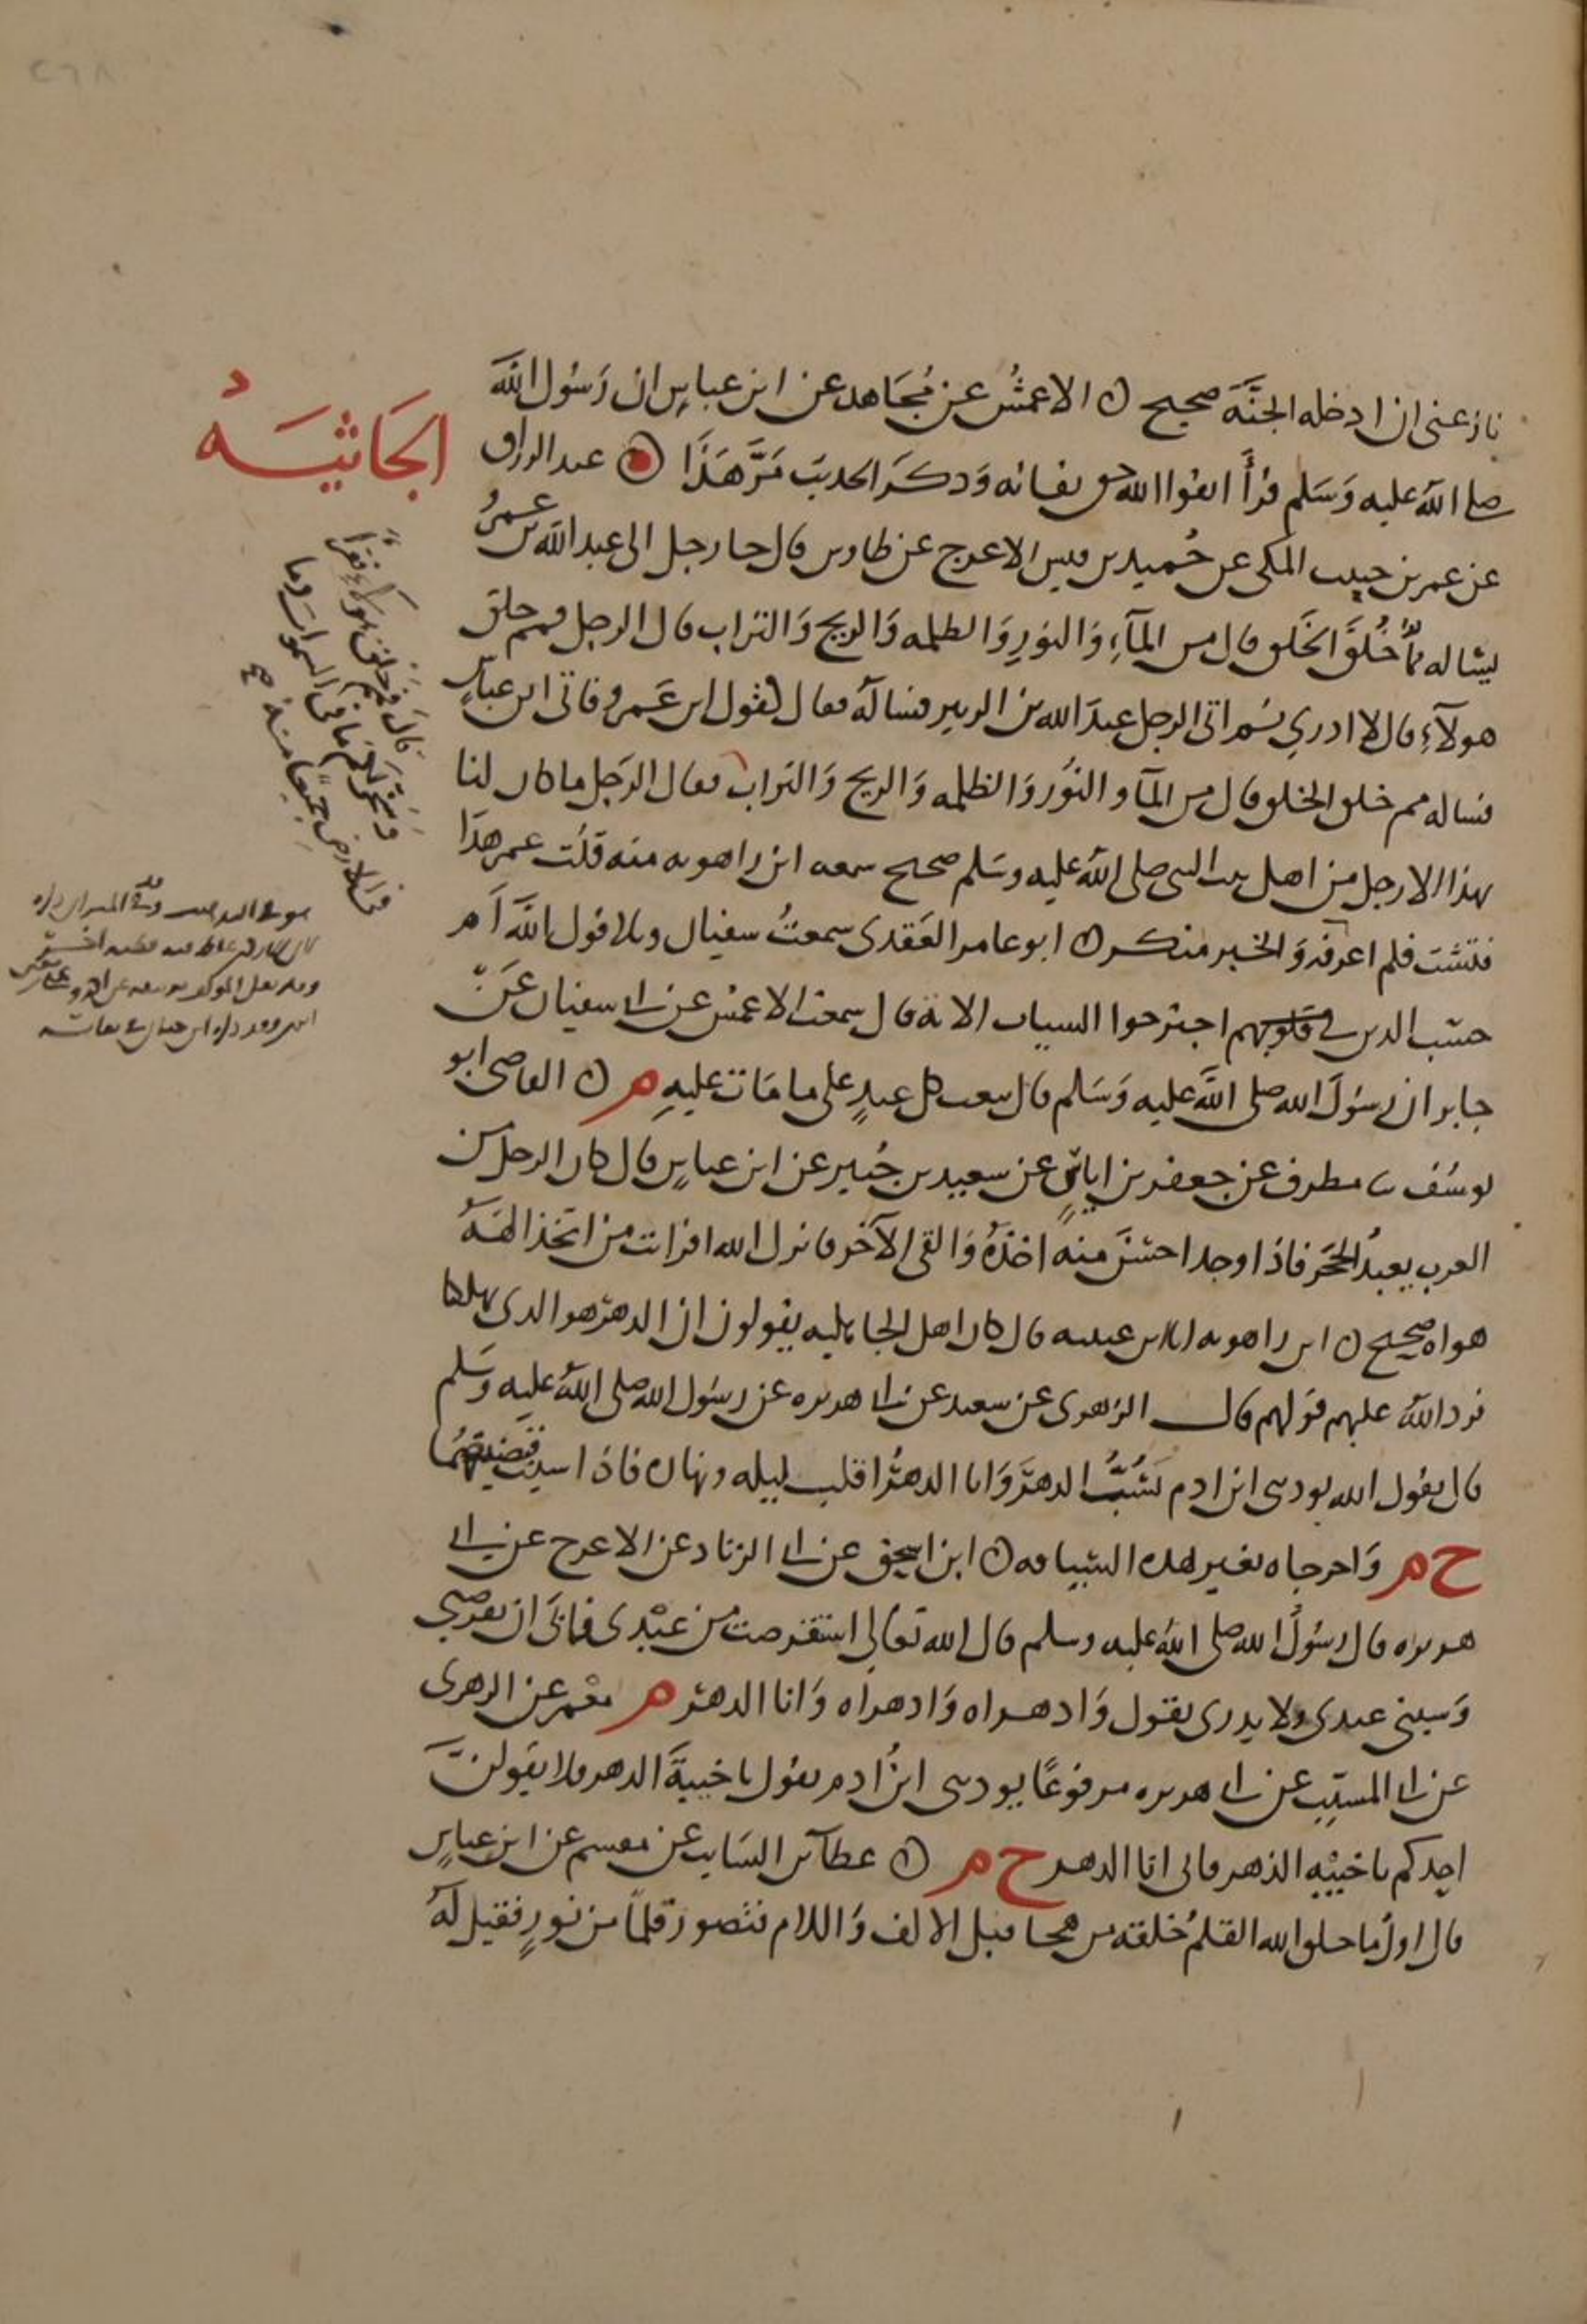 نازعنى ان ادخله الجنة صحيح ن الاعمش عن مجاهد عن ابن عباس ان رسول الله
صلى الله عليه وسلم قرأ اتقوا الله حق تقاته وذكر الحديث مَرَّ هَذَا ن عبد الرزاق
عن عمر بن حبيب المكى عن حُميد بن قيس الاعرج عن طاوس قال جا رجل الى عبد الله بن عمرو
يساله ممَّ خُلقَ الخَلق قال من المآءِ وَالنورِ وَالظلمه وَالريح وَالتراب قال الرجل فمم خلق
هولآءِ قال لا ادري ثم اتى الرجل عبدَ الله بن الزبير فساله فقال كقول ابن عَمرو فاتى ابن عباسٍ
فساله مم خلق الخلق قال من المآ والنُور وَالظلمه وَالريح وَالتراب فقال الرجل ما كان لنا
بهذا الا رجل من اهل بيت النبى صلى الله عليه وسلم صحيح سمعه ابن راهويه منه قلت عمر هذا
فتشت فلم اعرفه وَالخبر منكر ن ابو عامر العَقدى سمعتُ سفيان وتلا قول الله اَم
حسب الذين فى قلوبهم اجترحوا السيات الاية قال سمعت الاعمش عن ابى سفيان عَن
جابر ان رسُولَ الله صلى الله عليه وَسَلم قال يبعث كل عبدٍ على ما مَات عليهِ م ن القاضى ابو
يوسُف ثنا مطرف عن جعفر بن اياسٍ عن سعيد بن جُبير عن ابن عباسٍ قال كان الرجل من
العرب يعبدُ الحَجَر فاذا وجد احسَنَ منه اخذَهُ وَالقى الآخر فانزل الله افرايت من اتخذ الهَهُ
هواه صحيح ن ابن راهويه انا ابن عيينه قال كان اهل الجاهليه يقولون ان الدهرَ هو الذى يهلكنا
فرد اللهُ عليهم قولهم قال الزهرى عن سعيد عن ابى هريره عن رسُول الله صلى الله عليه وَسَلم
قال يقول الله يوذينى ابن ادم يَسُبُّ الدهرَ وَانا الدهرُ اقلب ليله ونهاره فاذا شيت قبضتهما
خ م وَاخرجاه بغير هذه السياقه ن ابن اسحق عن ابى الزناد عن الاعرج عن ابى
هريره قال رسُولُ الله صلى الله عليه وسلم قال الله تعَالى استقرضت من عَبْدى فابَى ان يقرضنى
وَسبنى عبدى ولا يدرى يقول وَا دهراه وَا دهراه وَانا الدهر م معْمر عن الزهرى
عن ابى المسيّب عن ابى هريره مرفوعًا يوذينى ابنُ ادم يقول يا خيبةَ الدهر فلا يقولنَّ
احدكم يا خيبْه الدهر فانى انا الدهر خ م ن عطآ بن السَايب عن مقسم عن ابن عباسٍ
قال اولُ ما خلق الله القلمُ خلقه من هجا قبل الالف وَاللام فتصور قلمًا من نورٍ فقيل لهُ
الجَاثيَـــهُ
قالَ فمم خلق هولاءِ فقرأ
وَسَخَّرَ لَكُم مَا فى السموات وما
فى الارض جَميعًا منه صح